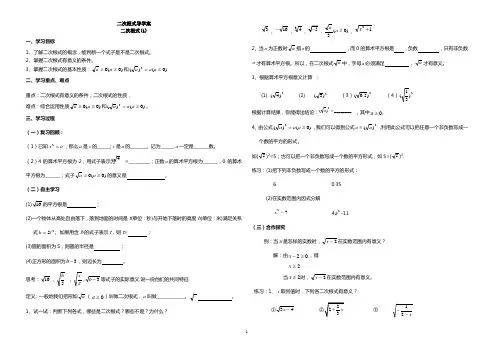 二次根式导学案
二次根式(1)
一、学习目标
1、了解二次根式的概念，能判断一个式子是不是二次根式。
2、掌握二次根式有意义的条件。
3、掌握二次根式的基本性质：√a≥0(a≥0)和(√a)²=a(a≥0)
二、学习重点、难点
重点：二次根式有意义的条件；二次根式的性质．
难点：综合运用性质√a≥0(a≥0)和(√a)²=a(a≥0)。
三、学习过程
（一）复习回顾：
（1）已知x²=a，那么a是x的______；x是a的______，记为______，a一定是______数。
（2）4的算术平方根为2，用式子表示为√4=________；正数a的算术平方根为______，0的算术
平方根为______；式子√a≥0(a≥0)的意义是 。
（二）自主学习
(1)√16的平方根是 ；
(2)一个物体从高处自由落下，落到地面的时间是t(单位：秒)与开始下落时的高度h(单位：米)满足关系
式h=5t²。如果用含h的式子表示t，则t= ；
(3)圆的面积为S，则圆的半径是 ；
(4)正方形的面积为b-3，则边长为 。
思考：√16，√(h/5)，√(s/π)，√(b-3)等式子的实际意义.说一说他们的共同特征.
定义：一般地我们把形如√a（a≥0）叫做二次根式，a叫做_____________。√ 。
1、试一试：判断下列各式，哪些是二次根式？哪些不是？为什么？
√3，-√16，∛4，√-5，√(a/3)(a≥0)，√(x²+1)
2、当a为正数时√a指a的 ，而0的算术平方根是 ，负数 ，只有非负数
a才有算术平方根。所以，在二次根式√a中，字母a必须满足 ，√a才有意义。
3、根据算术平方根意义计算 ：
(1) (√4)² (2) (√3)² （3）(√0.5)² （4）(√(1/3))²
根据计算结果，你能得出结论：(√a)²=________，其中a≥0，
4、由公式(√a)²=a(a≥0)，我们可以得到公式a=(√a)² ,利用此公式可以把任意一个非负数写成一
个数的平方的形式。
如(√5)²=5；也可以把一个非负数写成一个数的平方形式，如5=(√5)².
练习：(1)把下列非负数写成一个数的平方的形式：
6 0.35
(2)在实数范围内因式分解
x²-7 4a²-11
（三）合作探究
例：当x是怎样的实数时，√(x-2)在实数范围内有意义？
解：由x-2≥0，得
x≥2
当x≥2时，√(x-2)在实数范围内有意义。
练习：1、x取何值时，下列各二次根式有意义？
①√(3x-4) ②√(2+2/3x) ③